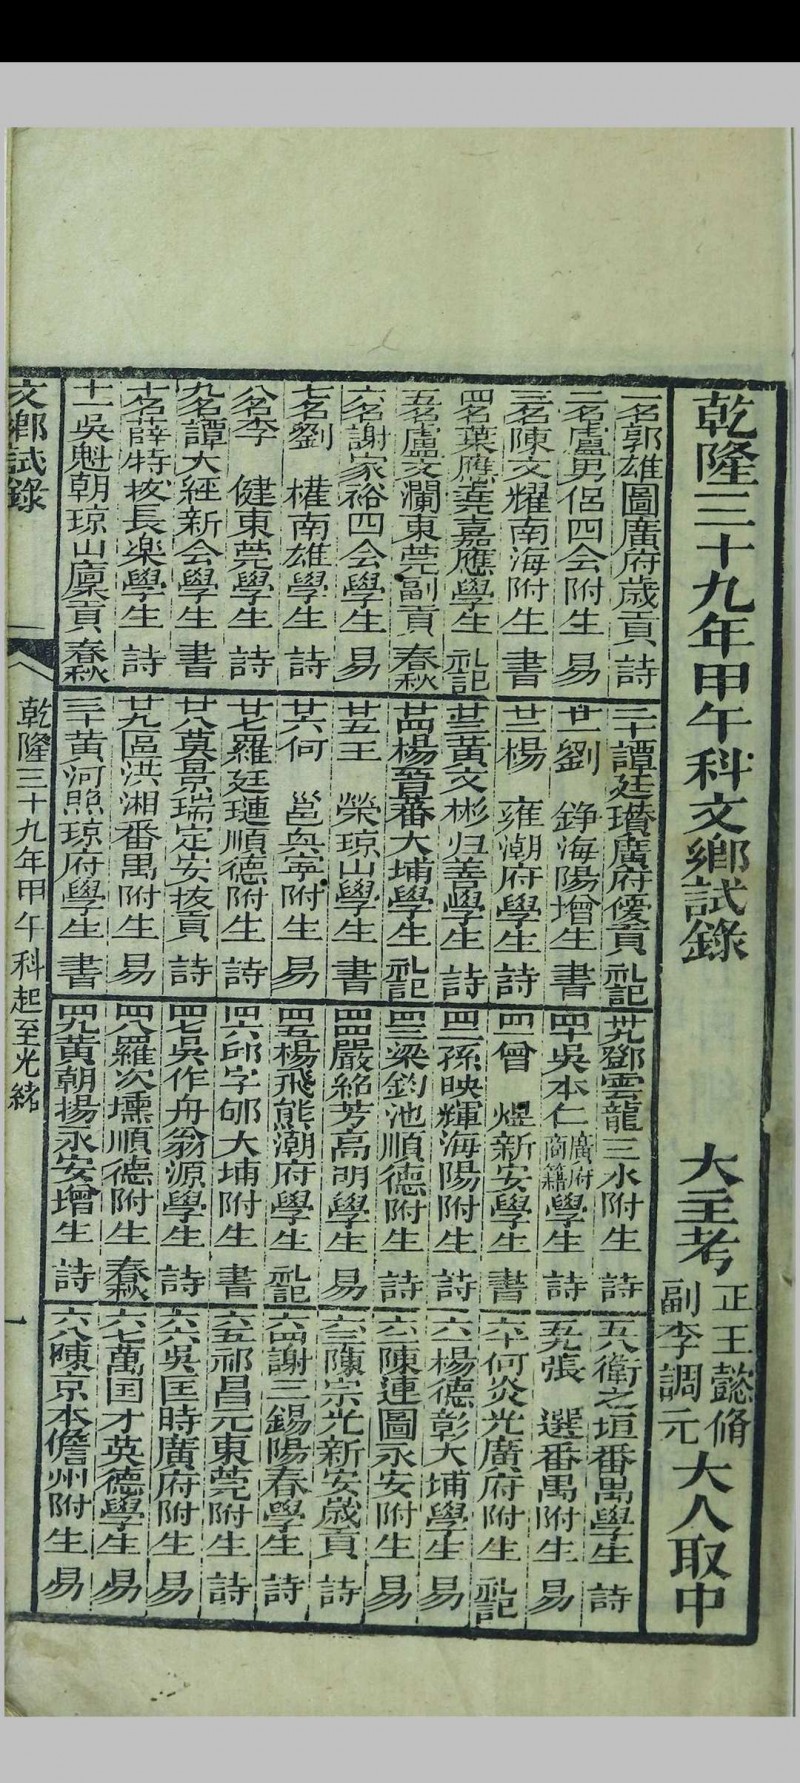 乾隆三十九年甲午科文鄉試錄 大主考 正王懿脩 副李調元 大人取中
一名郭雄圖廣府歲貢 詩
二名盧男侶四会附生 易
三名陳文耀南海附生 書
四名葉應蕘嘉應學生 礼記
五名盧文瀾東莞副貢 春秋
六名謝家裕四会學生 易
七名劉 權南雄學生 詩
八名李 健東莞學生 詩
九名譚大經新会學生 書
十名薛特拔長楽學生 詩
十一吳魁朝琼山廩貢 春秋
二十譚廷瓚廣府優貢 礼記
廿一劉 錚海陽增生 書
廿二楊 雍潮府學生 詩
廿三黃文彬归善學生 詩
廿四楊晉蕃大埔學生 礼記
廿五王 榮琼山學生 書
廿六何 邕與寧附生 易
廿七羅廷璉順德附生 詩
廿八莫景瑞定安拔貢 詩
廿九區洪湘番禺附生 易
三十黃河照琼府學生 書
卅九鄧雲龍三水附生 詩
四十吳本仁廣府商籍學生 詩
四一曾 煜新安學生 書
四二孫映輝海陽附生 詩
四三梁鈞池順德附生 詩
四四嚴紹芳高明學生 易
四五楊飛熊潮府學生 礼記
四六邱字郇大埔附生 書
四七吳作舟翁源學生 詩
四八羅次壎順德附生 春秋
四九黃朝揚永安增生 詩
五八衛之垣番禺學生 詩
五九張 選番禺附生 易
六十何炎光廣府附生 礼記
六一楊德彰大埔學生 易
六二陳連圖永安附生 易
六三陳宗光新安歲貢 詩
六四謝三錫陽春學生 詩
六五祁昌元東莞附生 詩
六六吳匡時廣府附生 易
六七萬国才英德學生 易
六八陳京本儋州附生 易
文鄉試錄 乾隆三十九年甲午科起至光緒 一